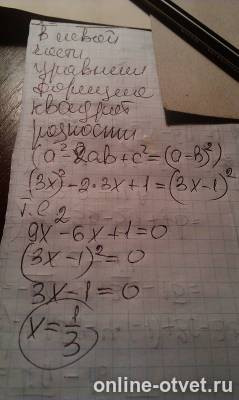 В левой
части
уравнен
формула
квадрат
разности
(a²-2ab+c²=(a-в)²)
(3x)²-2·3x+1=(3x-1)²
т.е
9x²-6x+1=0
(3x-1)²=0
3x-1=0
x=1/3
online-otvet.ru